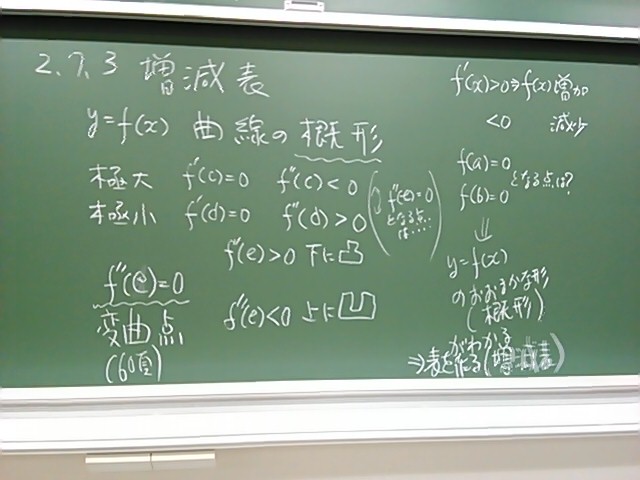 2.7.3 増減表
y=f(x) 曲線の概形
極大 f'(c)=0 f''(c)<0
極小 f'(d)=0 f''(d)>0
(f''(e)=0
となる点
は....)
f''(e)>0 下に凸
f''(e)=0
f''(e)<0 上に凹
変曲点
(60頁)
f'(x)>0⇒f(x)増加
<0 減少
f(a)=0
f(b)=0 となる点は?
⇓
y=f(x)
のおおまかな形
(概形)
がわかる
⇒表を作る(増減表)